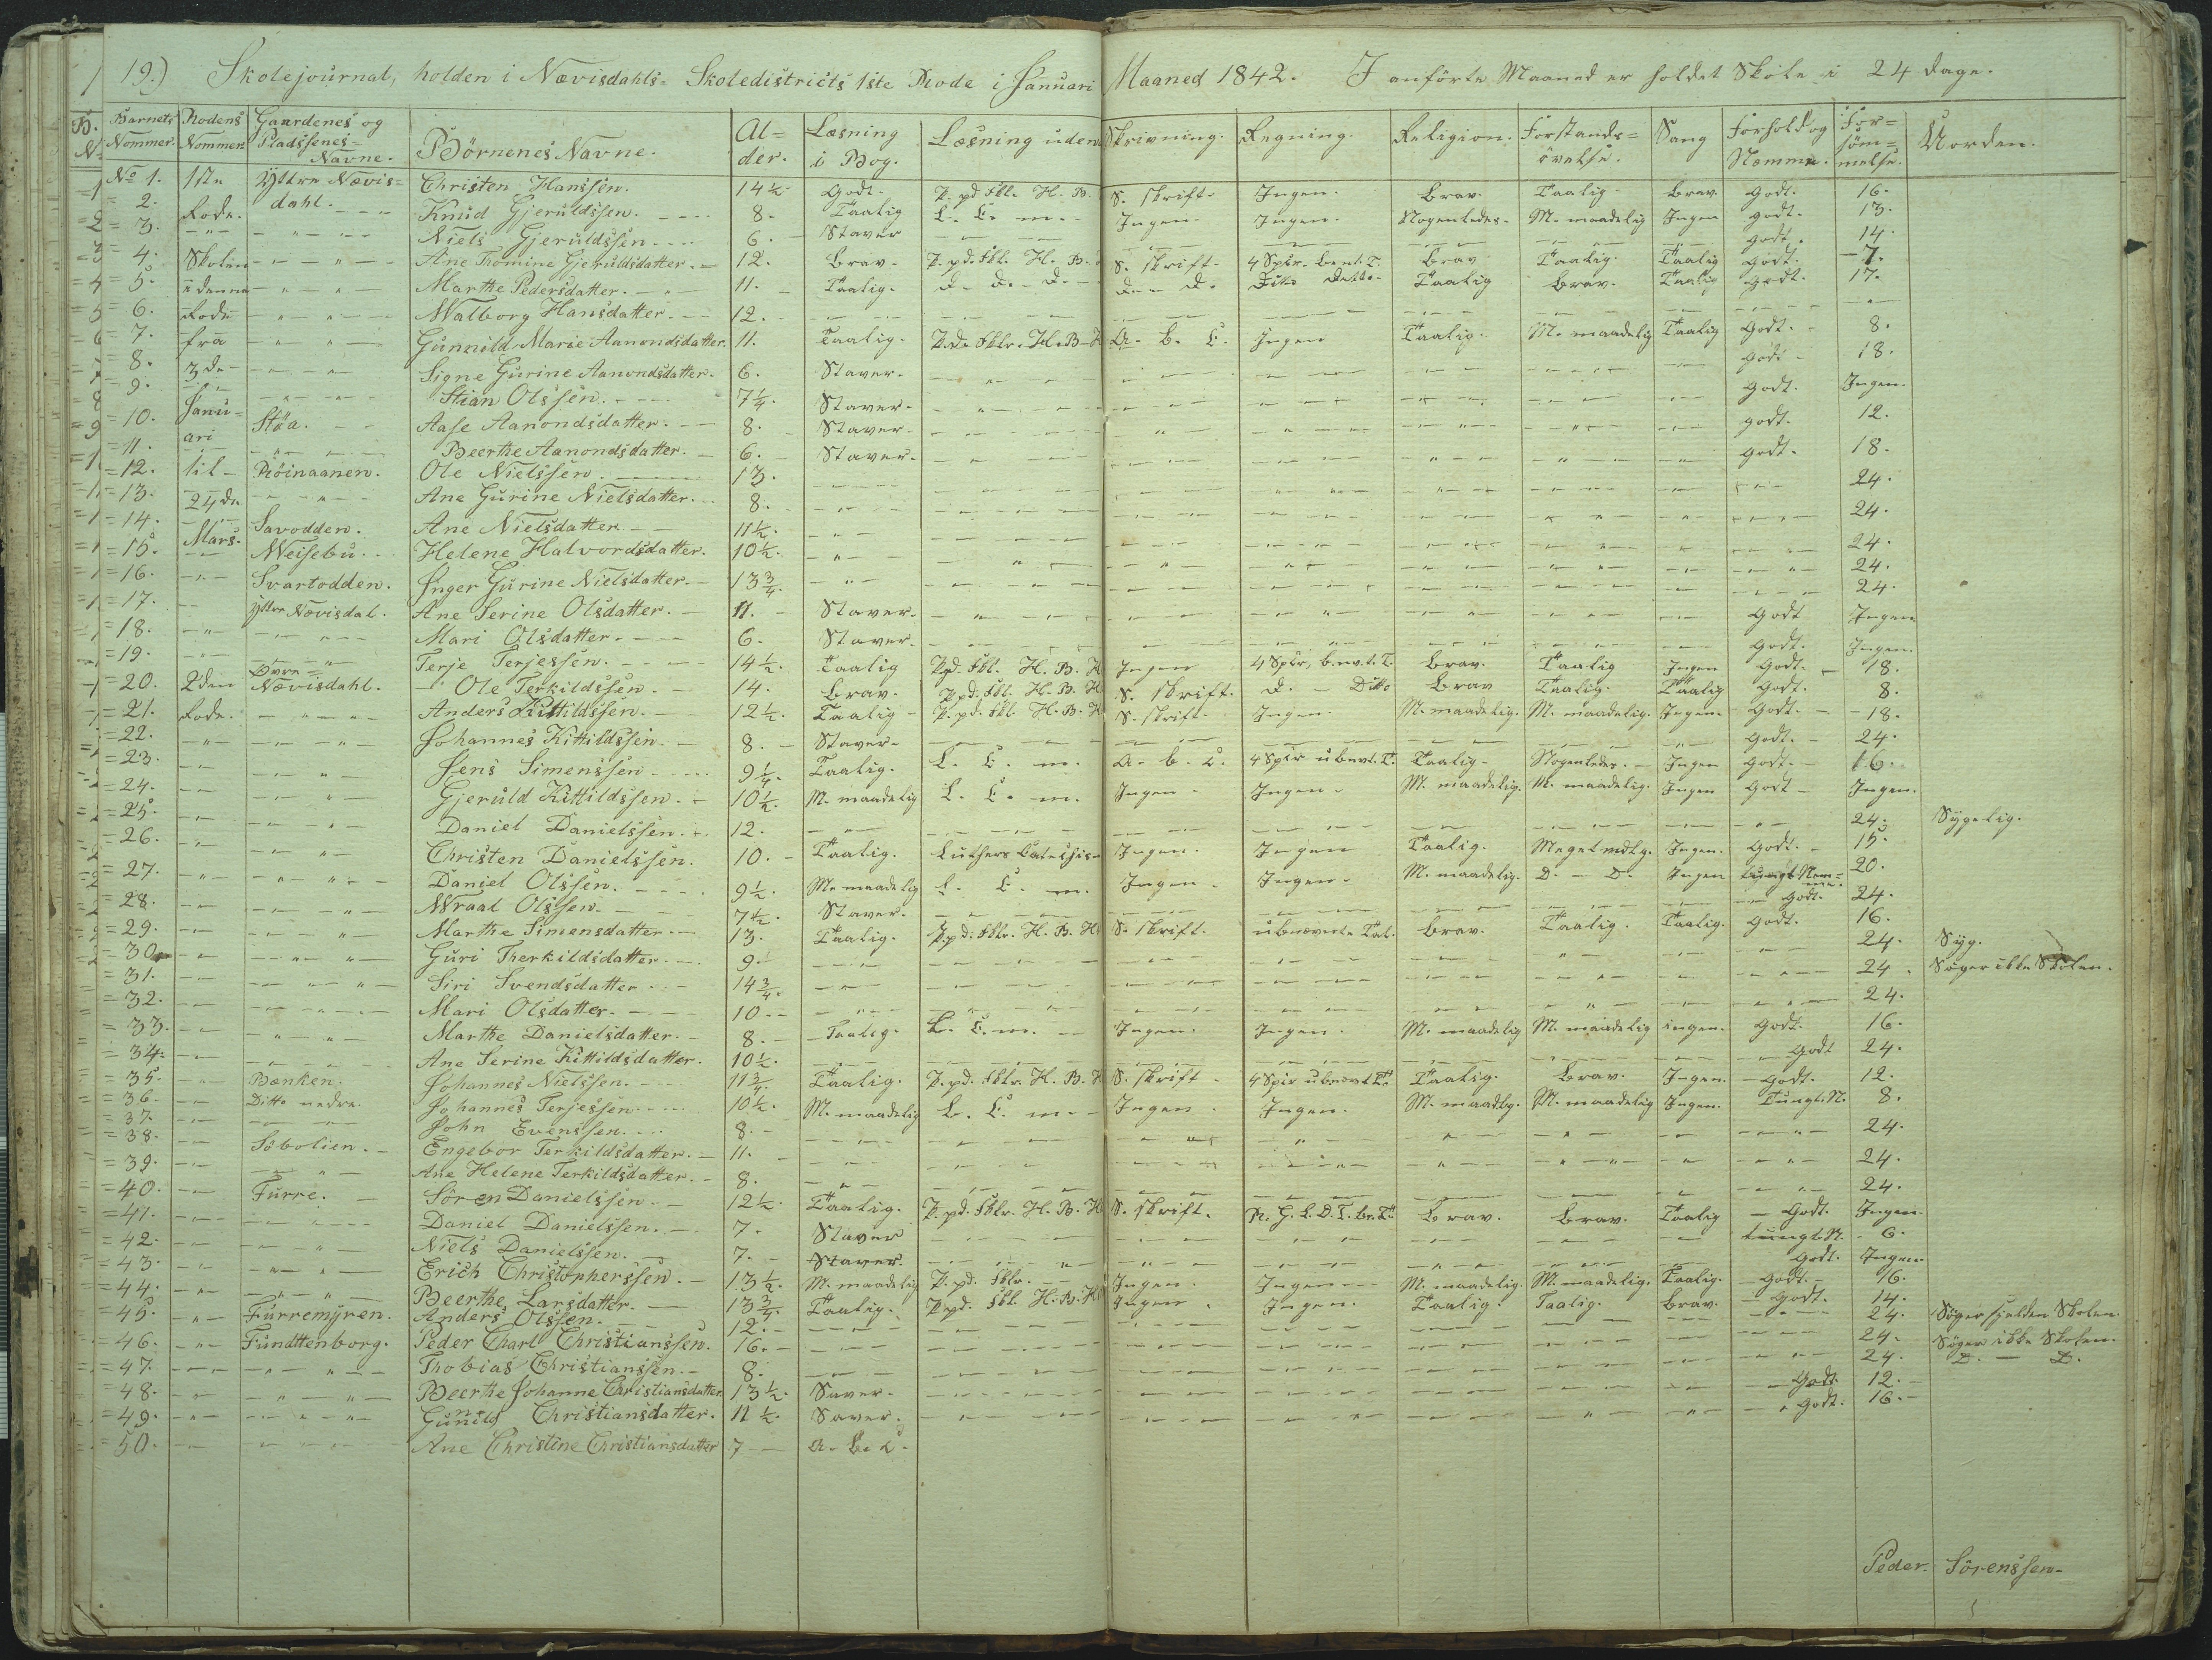 19.) Skolejournal, holden i Nævisdahls- Skoledistricts 1ste Rode i Januari Maaned 1842. I anførte Maaned er holdet Skole i 24 dage.
Barnets Nommer. Rodens Nommer. Gaardenes og Pladssenes- Navne. Børnenes Navne. Al= der. Læsning i Bog. Læsning uden Skrivning. Regning. Religion. Forstands= øvelse. Sang Forhold og Nemme. For= søm= melse. Norden.
No 1. 1ste Yttre Nævis= Christen Hanssen. 14½. Godt. P. pd Fkl. H. B. S. skrift. Ingen. Brav. Taalig. Brav. Godt. 16.
2. Rode. dahl. Knud Gjeruldssen. 8. Taalig L. C. m. Ingen. Ingen. Nogenledes. M. maadelig Ingen godt. 13.
3. Niels Gjeruldssen. 6. Staver godt. 14.
4. Skolen Ane Tromine Gjeruldsdatter. 12. Brav. P. pd. Fkl. H. B. S. skrift. 4 Spkr. bent. T. Brav Taalig. Taalig Godt. 7.
5. i denne Marthe Pedersdatter. 11. Taalig. D. D. D. D. D. Ditto Detto. Taalig Brav. Taalig Godt. 17.
6. Rode Walborg Hansdatter. 12.
7. fra Gunnild Marie Aanondsdatter. 11. Taalig. P. d. Fklr. H. B. A. B. C. Ingen Taalig. M. maadelig Taalig Godt. 8.
8. 3de Signe Gurine Aanondsdatter. 6. Staver. godt 18.
9. Janu= Stian Olssen. 7¼. Staver. Godt. Ingen.
10. ari Støa. Aase Aanondsdatter. 8. Staver. godt. 12.
11. Beerthe Aanondsdatter. 6. Staver. godt. 18.
12. til Røinaanen. Ole Nielssen 13. 24.
13. 24de Ane Gurine Nielsdatter. 8. 24.
14. Mars. Savodden. Ane Nielsdatter 11½. 24.
15. Weisebu. Helene Halvordsdatter. 10½. 24.
16. Svartodden. Inger Gurine Nielsdatter. 13¾. 24.
17. Yttre Nævisdal. Ane Serine Olsdatter. 11. Staver. Godt Ingen
18. Mari Olsdatter. 6. Staver. Godt. Ingen.
19. Terje Terjessen. 14½. Taalig P. pd. Fkl. H. B. H Ingen 4 Spkr, benv. t. T. Brav. Taalig Ingen Godt. 18.
20. 2den Øvre Nævisdahl. Ole Terkildssen. 14. Brav. P. pd. Fkl. H. B. H S. skrift. D. Ditto Brav Taalig. Taalig Godt. 8.
21. Rode. Anders Kittildssen. 12½. Taalig P. pd. Fkl. H. B. H S. skrift. Ingen. M. maadelig. M. maadelig. Ingen. Godt. 18.
22. Johannes Kittildssen. 8. Staver. Godt. 24.
23. Jens Simenssen 9¼. Taalig. L. C. m. A. b. c. 4 Spkr ubnvt. T. Taalig. Nogenledes. Ingen Godt. 16.
24. Gjeruld Kittildssen. 10½. M. maadelig L. C. m. Ingen. Ingen. M. maadelig. M. maadelig. Ingen Godt Ingen.
25. Daniel Danielssen. 12. 24. Sygelig.
26. Christen Danielssen. 10. Taalig. Luthers Catechis= Ingen. Ingen Taalig. Meget mdlg. Ingen. Godt. 15.
27. Daniel Olssen. 9½. M. maadelig L. C. m. Ingen. Ingen. M. maadelig. D. D. Ingen tungt Nem= me. 20.
28. Wraal Olssen. 7½. Staver. Godt. 24.
29. Marthe Simensdatter. 13. Taalig. P. pd. Fklr. H. B. H S. skrift. ubnævnte Tal. Brav. Taalig. Taalig. Godt. 16.
30. Guri Therkildsdatter. 9. 24. Syg.
31. Siri Svendsdatter 14¾. 24. Søger ikke Skolen.
32. Mari Olsdatter. 10. 24.
33. Marthe Danielsdatter. 8. Taalig. L. C. m. Ingen. Ingen. M. maadelig M. maadelig ingen. Godt. 16.
34. Ane Serine Kittildsdatter. 10½. Godt 24.
35. Bænken. Johannes Nielssen. 11¾. Taalig. P. pd. Fklr. H. B. H S. skrift 4 Spkr ubnvnt T. Taalig. Brav. Ingen. Godt. 12.
36. Ditto nedre. Johannes Terjessen. 10½. M. maadelig L. C. m. Ingen. Ingen. M. maadlg. M. maadelig Ingen. Tungt. N. 8.
37. John Evenssen. 8. 24.
38. Søbolien. Engebor Terkildsdatter. 11. 24.
39. Ane Helene Terkildsdatter. 8. 24.
40. Furre. Søren Danielssen. 12½. Taalig. P. pd. Fklr. H. B. H S. skrift. Brav. Brav. Taalig Godt. Ingen.
41. Daniel Danielssen. 7. Staver tungt. N. 6.
42. Niels Danielssen. 7. Staver. Godt. Ingen
43. Erich Christopherssen. 13½. M. maadelig P. pd. Fklr. Ingen. Ingen M. maadelig. M. maadelig. Taalig. Godt. 16.
44. Beerthe Larsdatter. 13¾. Taalig. P. pd. Fkl. H. B. H Ingen. Ingen. Taalig. Taalig. Brav. Godt. 14.
45. Furremyren. Anders Olssen. 12. 24. Søger sjelden Skolen.
46. Fundttenborg. Peder Charl Christianssen. 16. 24. Søger ikke Skolen.
47. Thobias Christianssen. 8. 24. D. D.
48. Beerthe Johanne Christiansdatter. 13½. Saver. Godt. 12.
49. Gunild Christiansdatter. 11½. Saver. Godt. 16.
50. Ane Christine Christiansdatter 7 A. B. C.
Peder. Sörenssen